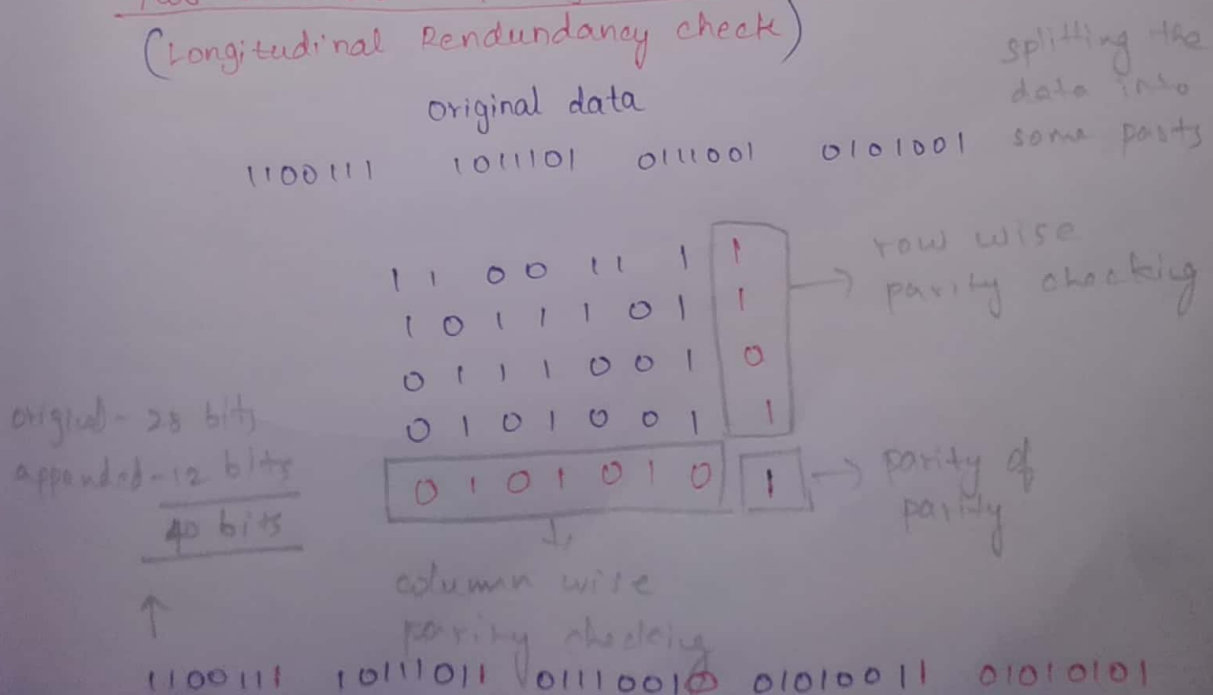 (Longitudinal Rendundancy check)
original data
splitting the
data into
some parts
1100111 1011101 0111001 0101001
1 1 0 0 1 1 1 1
1 0 1 1 1 0 1 1
0 1 1 1 0 0 1 0
0 1 0 1 0 0 1 1
0 1 0 1 0 1 0 1
row wise
parity checking
original - 28 bits
appended - 12 bits
40 bits
parity of
parity
column wise
parity checking
1100111 10111011 01110010 01010011 01010101